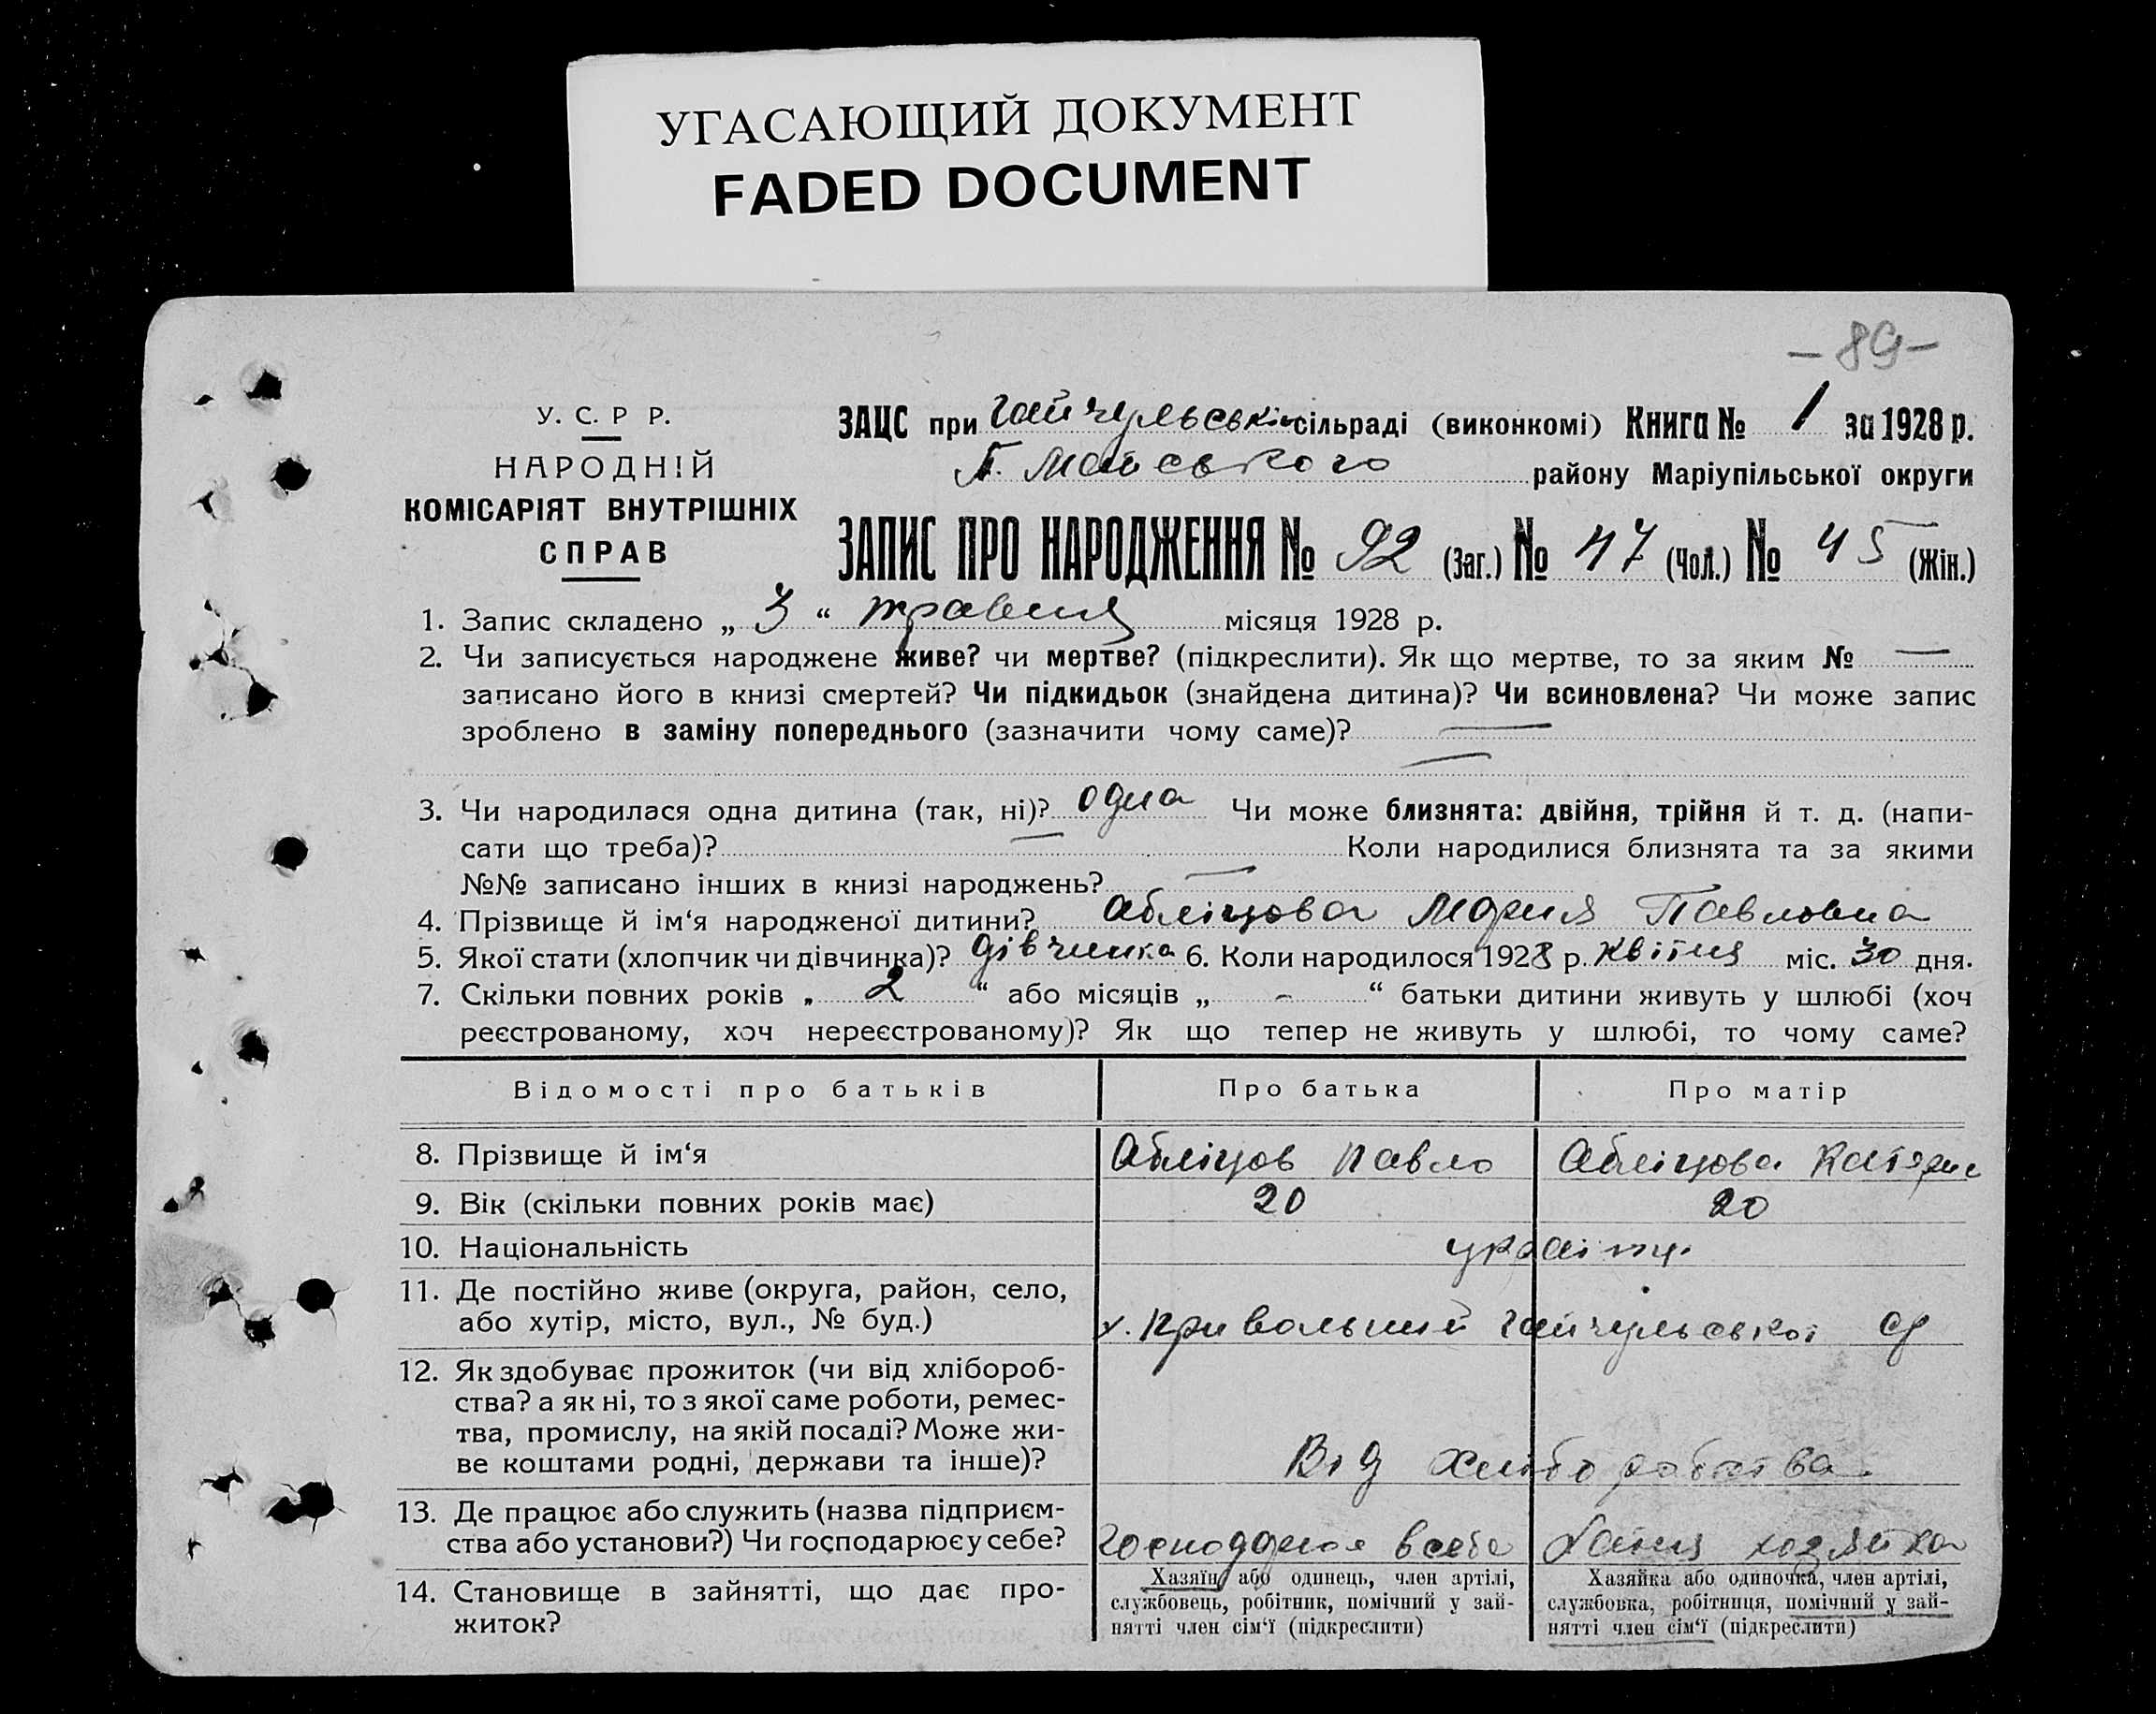 УГАСАЮЩИЙ ДОКУМЕНТ
FADED DOCUMENT
– 89 –
У. С. Р Р.
НАРОДНІЙ
КОМІСАРІЯТ ВНУТРІШНІХ
СПРАВ
ЗАЦС при Гайчульській сільраді (виконкомі) Книга № 1 за 1928 р.
району Маріупільської округи
ЗАПИС ПРО НАРОДЖЕННЯ № 92 (Заг.) № 47 (Чол.) № 45 (Жін.)
1. Запис складено „ 3 “ травня місяця 1928 р.
2. Чи записується народжене живе? чи мертве? (підкреслити). Як що мертве, то за яким № —
записано його в книзі смертей? Чи підкидьок (знайдена дитина)? Чи всиновлена? Чи може запис
зроблено в заміну попереднього (зазначити чому саме)? —
—
3. Чи народилася одна дитина (так, ні)? одна Чи може близнята: двійня, трійня й т. д. (напи-
сати що треба)? — Коли народилися близнята та за якими
№№ записано інших в книзі народжень? —
4. Прізвище й ім‘я народженої дитини? Абліцова Мария Павловна
5. Якої стати (хлопчик чи дівчинка)? дівчинка 6. Коли народилося 1928 р. квітня міс. 30 дня.
7. Скільки повних років „ 2 “ або місяців „ - “ батьки дитини живуть у шлюбі (хоч
реєстрованому, хоч нереєстрованому)? Як що тепер не живуть у шлюбі, то чому саме?
Відомості про батьків Про батька Про матір
8. Прізвище й ім‘я Абліцов Павло Абліцова
9. Вік (скільки повних років має) 20 20
10. Національність
11. Де постійно живе (округа, район, село,
або хутір, місто, вул., № буд.) х. Привольний Гайчульської ср
12. Як здобуває прожиток (чи від хлібороб-
ства? а як ні, то з якої саме роботи, ремес-
тва, промислу, на якій посаді? Може жи-
ве коштами родні, держави та інше)? Від хліборобства
13. Де працює або служить (назва підприєм-
ства або установи?) Чи господарює у себе? в себе хатня хозяйка
14. Становище в зайнятті, що дає про-
житок?
Хазяїн або одинець, член артілі,
службовець, робітник, помічний у зай-
нятті член сім‘ї (підкреслити)
Хазяйка або одиночка, член артілі,
службовка, робітниця, помічний у зай-
нятті член сім‘ї (підкреслити)